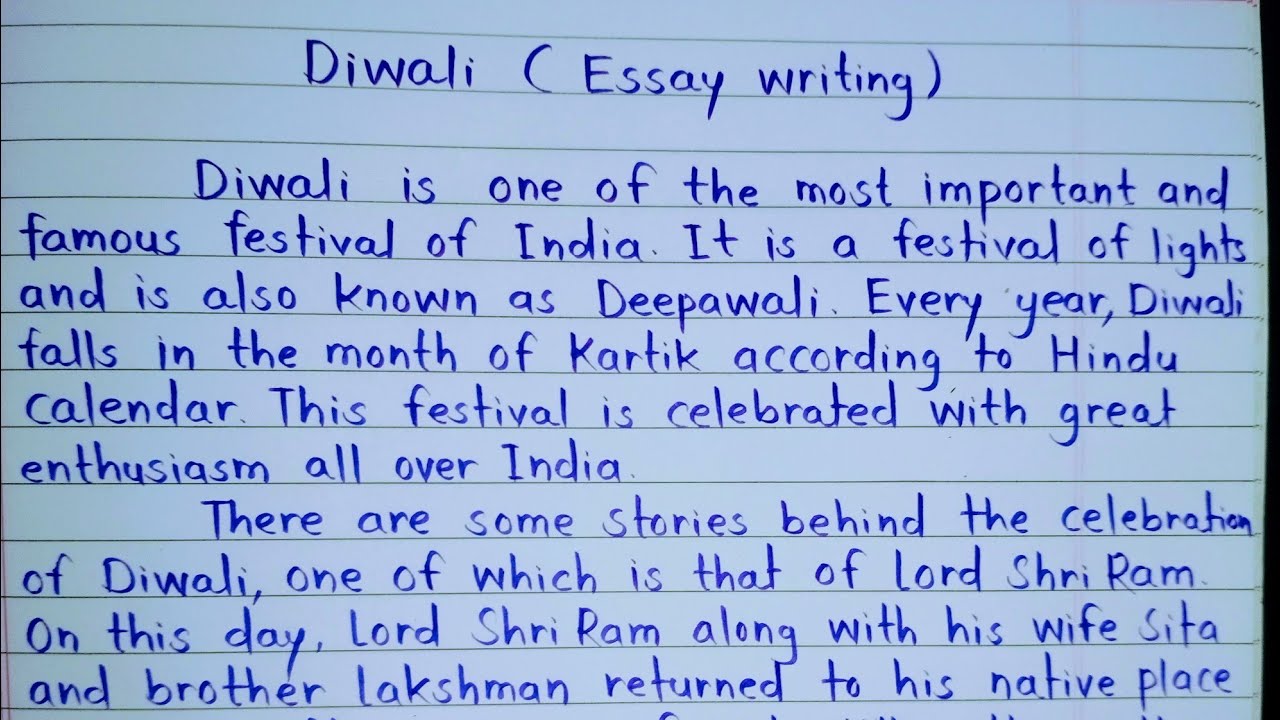 Diwali (Essay writing)
Diwali is one of the most important and
famous festival of India. It is a festival of lights
and is also known as Deepawali. Every year, Diwali
falls in the month of Kartik according to Hindu
calendar. This festival is celebrated with great
enthusiasm all over India.
There are some stories behind the celebration
of Diwali, one of which is that of Lord Shri Ram.
On this day, Lord Shri Ram along with his wife Sita
and brother Lakshman returned to his native place